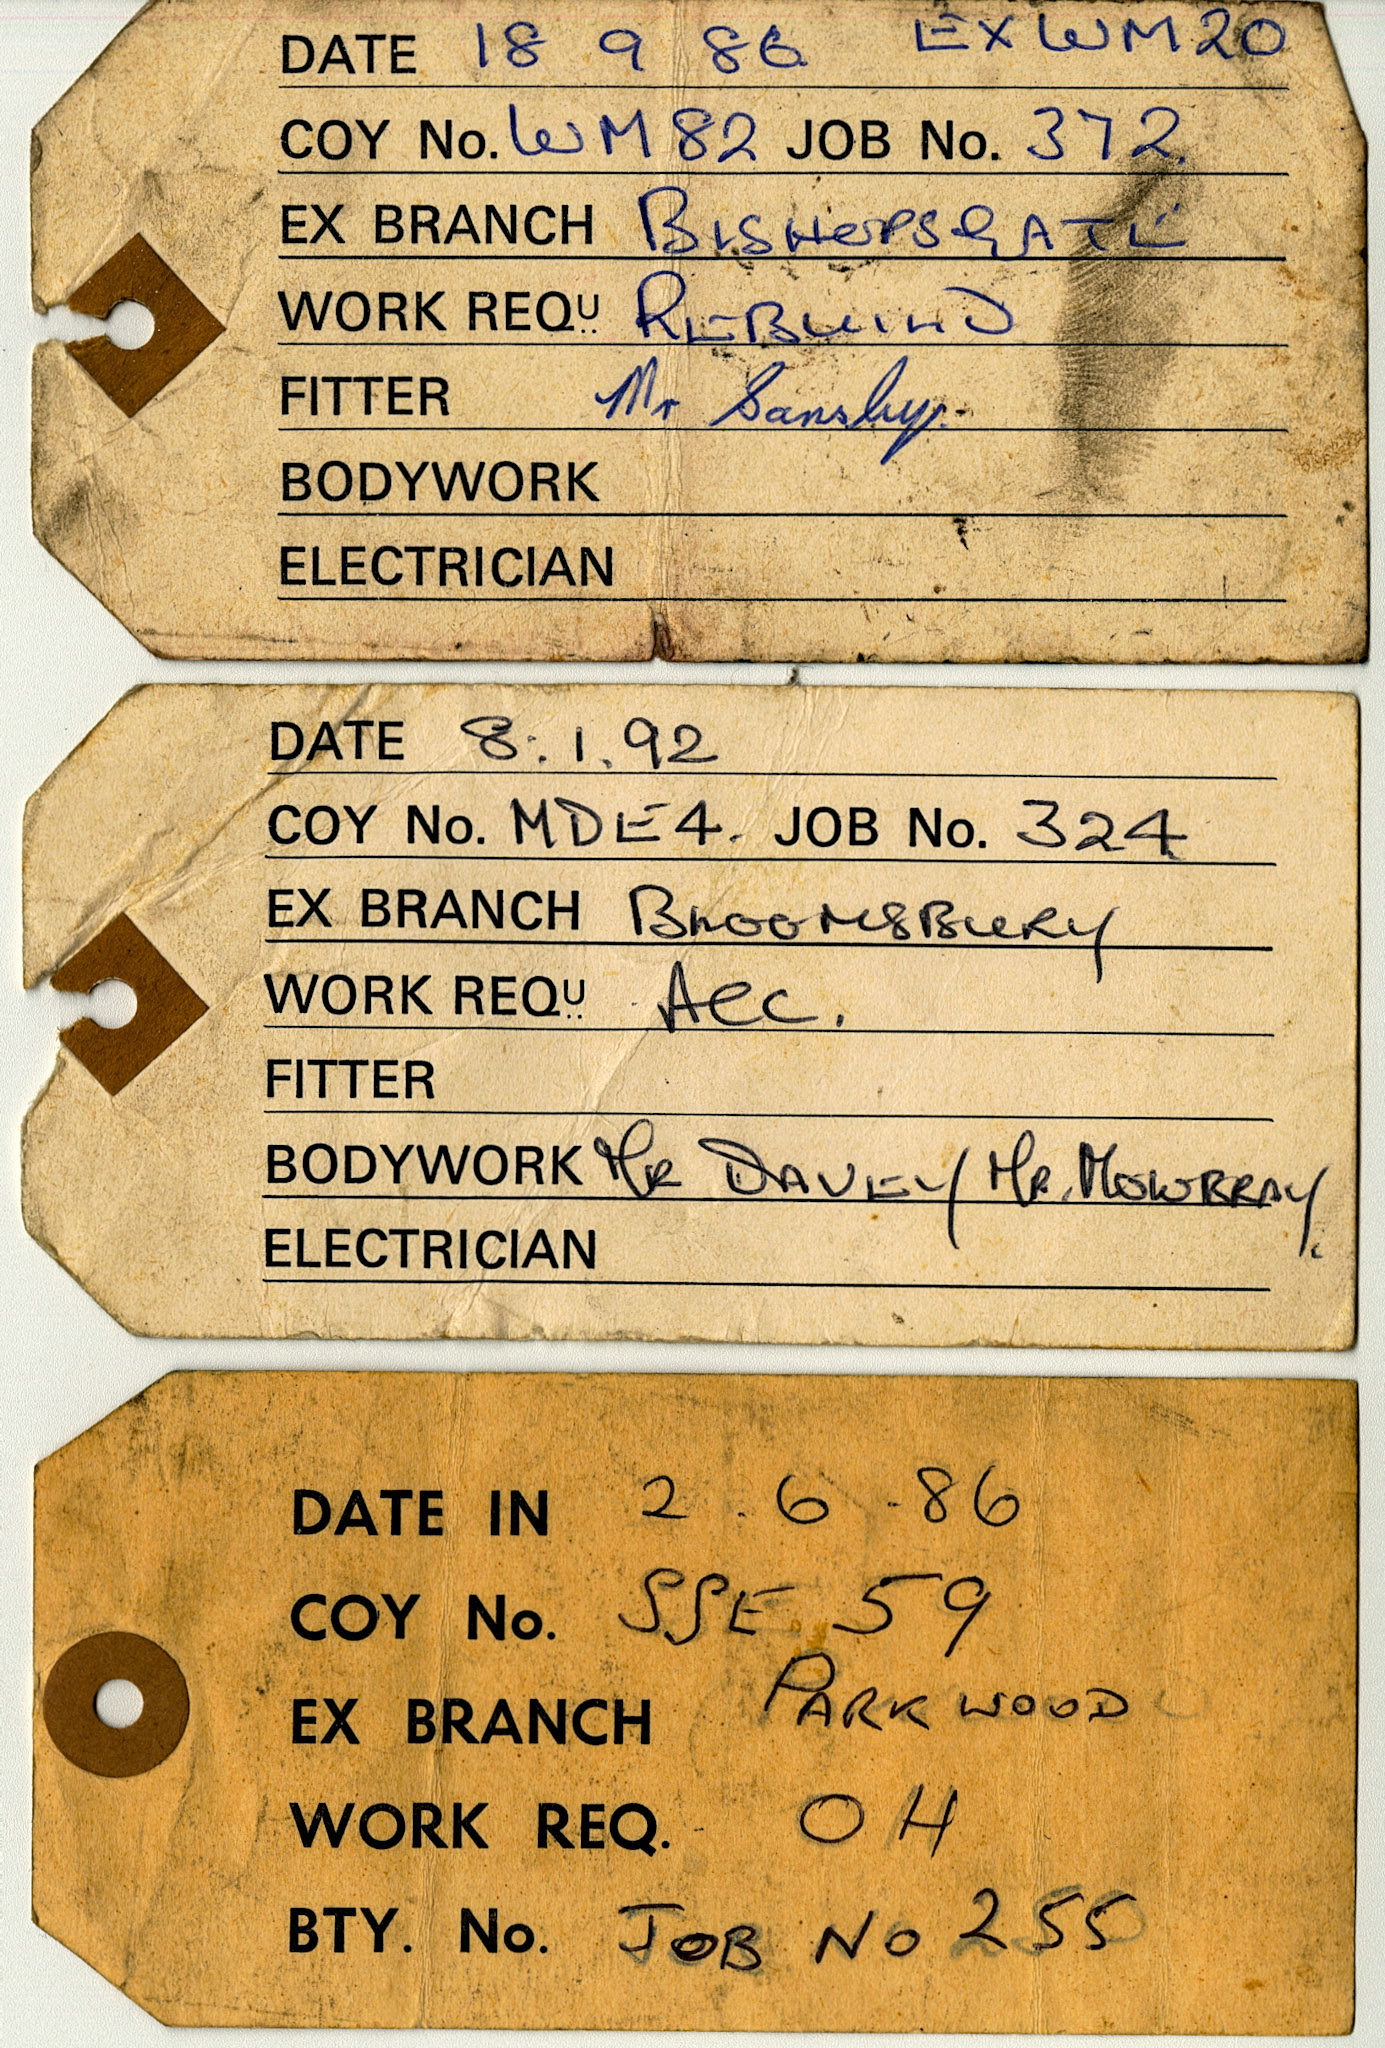 DATE 18 9 86 EX WM 20
COY No. WM 82 JOB No. 372.
EX BRANCH BISHOPSGATE
WORK REQU REBUILD
FITTER Mr Sansby.
BODYWORK
ELECTRICIAN
DATE 8.1.92
COY No. MDE4. JOB No. 324
EX BRANCH BLOOMSBURY
WORK REQU Acc.
FITTER
BODYWORK MR DAVEY MR. MOWBRAY.
ELECTRICIAN
DATE IN 2.6.86
COY No. SSE 59
EX BRANCH PARKWOOD
WORK REQ. OH
BTY. No. JOB No 255